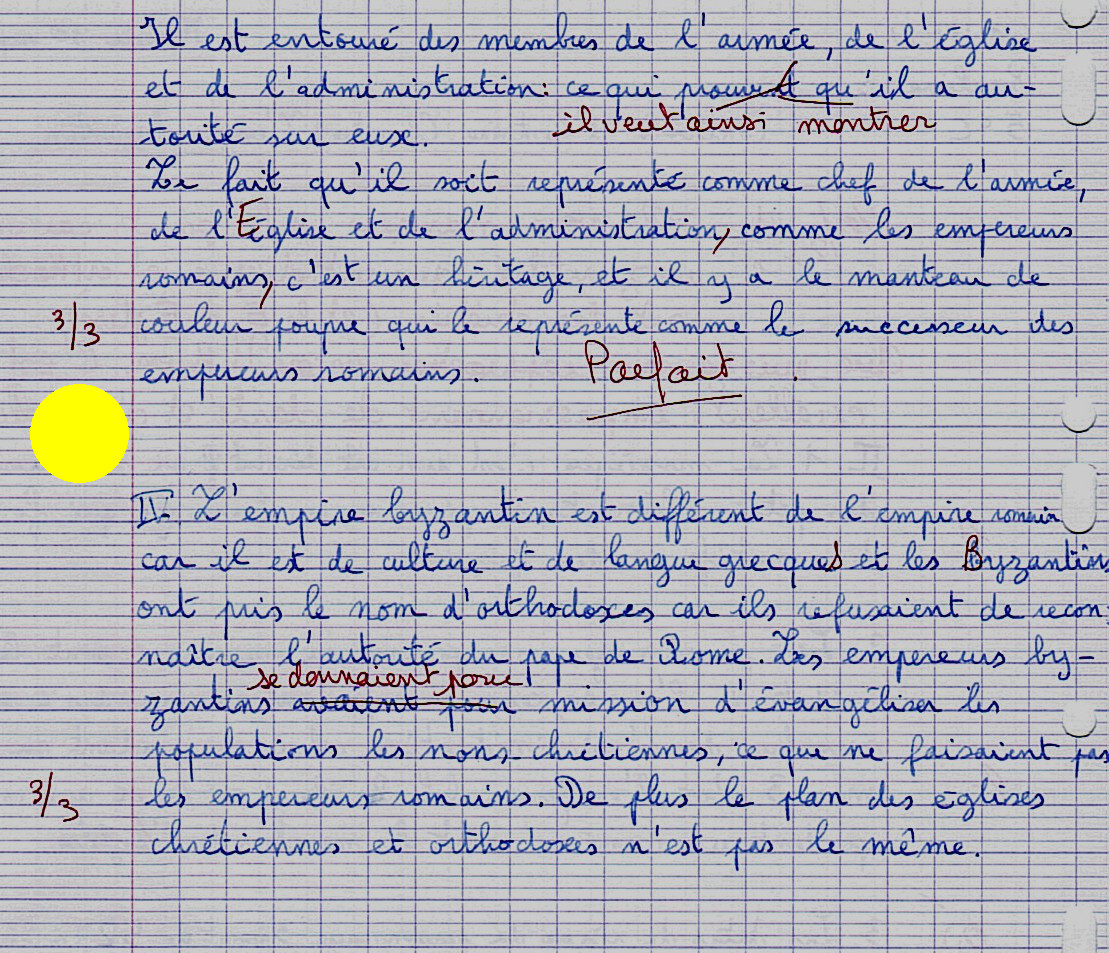 Il est entouré des membres de l'armée, de l'église
et de l'administration: ce qui prouvent qu'il a au-
il veut ainsi montrer
torité sur eux.
Le fait qu'il soit représenté comme chef de l'armée,
de l'Église et de l'administration, comme les empereurs
romains, c'est un héritage, et il y a le manteau de
3/3 couleur poupre qui le représente comme le successeur des
empereurs romains. Parfait.
II- L'empire byzantin est différent de l'empire romain
car il est de culture et de langue grecques et les Byzantins
ont pris le nom d'orthodoxes car ils refusaient de recon-
naître l'autorité du pape de Rome. Les empereurs by-
se donnaient pour
zantins avaient pour mission d'évangéliser les
populations les nons-chrétiennes, ce que ne faisaient pas
3/3 les empereurs romains. De plus le plan des églises
chrétiennes et orthodoxes n'est pas le même.